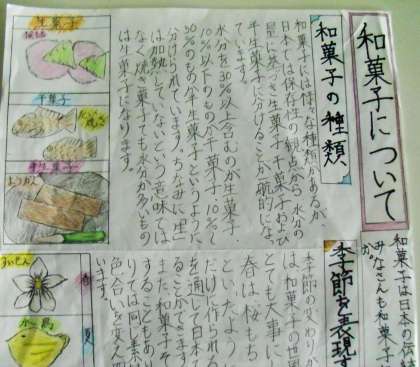 和菓子について
和菓子は日本の伝統
みなさんも和菓子に
和菓子の種類
和菓子には様々な種類があるが
日本では保存性の観点から、水分の
量に基づき生菓子、干菓子および
半生菓子に分けることが一般的にな
水分を30%以上含むのが生菓子
10%以下のものが干菓子、10%〜
30%のものが半生菓子というように
分けられています。ちなみに「生」
は加熱していないという意味では
なく、焼き菓子でも水分が多いもの
は生菓子になります。
生菓子
桜餅
干菓子
半生菓子
ようかん
季節を表現す
季節の変わりが
は、和菓子の世界
とても大事に
春は桜もち
といったように
だけに作られる
を通して日本
ることができます
また和菓子そ
することもあり
りでは同じ素
色合いを変え
います。
すいせん
春
小鳥
夏